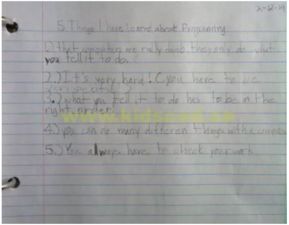 2-8-11
5 Things I have learned about Programming
1.) that computers are really dumb they only do what
you tell it to do.
2.) It's very hard! C you have to be
3.) what you tell it to do has to be in the
right order!
4.) you can do many different things with a computer
5.) You always have to check your work
www.kidscoo.ca